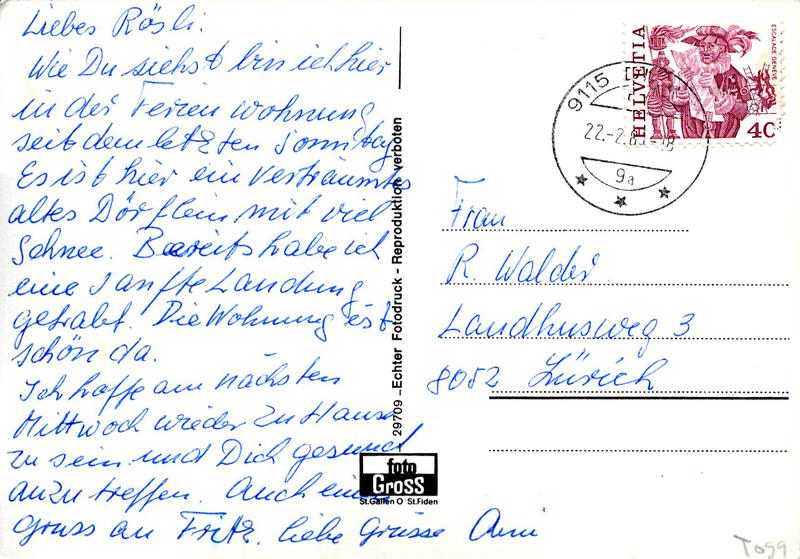 Liebes Rösli.
Wie Du siehst bin ich hier
in der Ferienwohnung
seit dem letzten Sonntag
Es ist hier ein verträumtes
altes Dörflein mit viel
Schnee. Bereits habe ich
eine sanfte Landung
gehabt. Die Wohnung ist
schön da.
Ich hoffe am nächsten
Mittwoch wieder zu Hause
zu sein und Dich gesund
anzutreffen. Auch einen
Gruss an Fritz. liebe Grüsse
29709 - Echter Fotodruck - Reproduktion verboten
foto
Gross
St.Gallen O St.Fiden
HELVETIA
ESCALADE GENÈVE
40
9115
22.-2.8
-18
9a
Frau
R. Walder
Landhusweg 3
8052 Zürich
To59